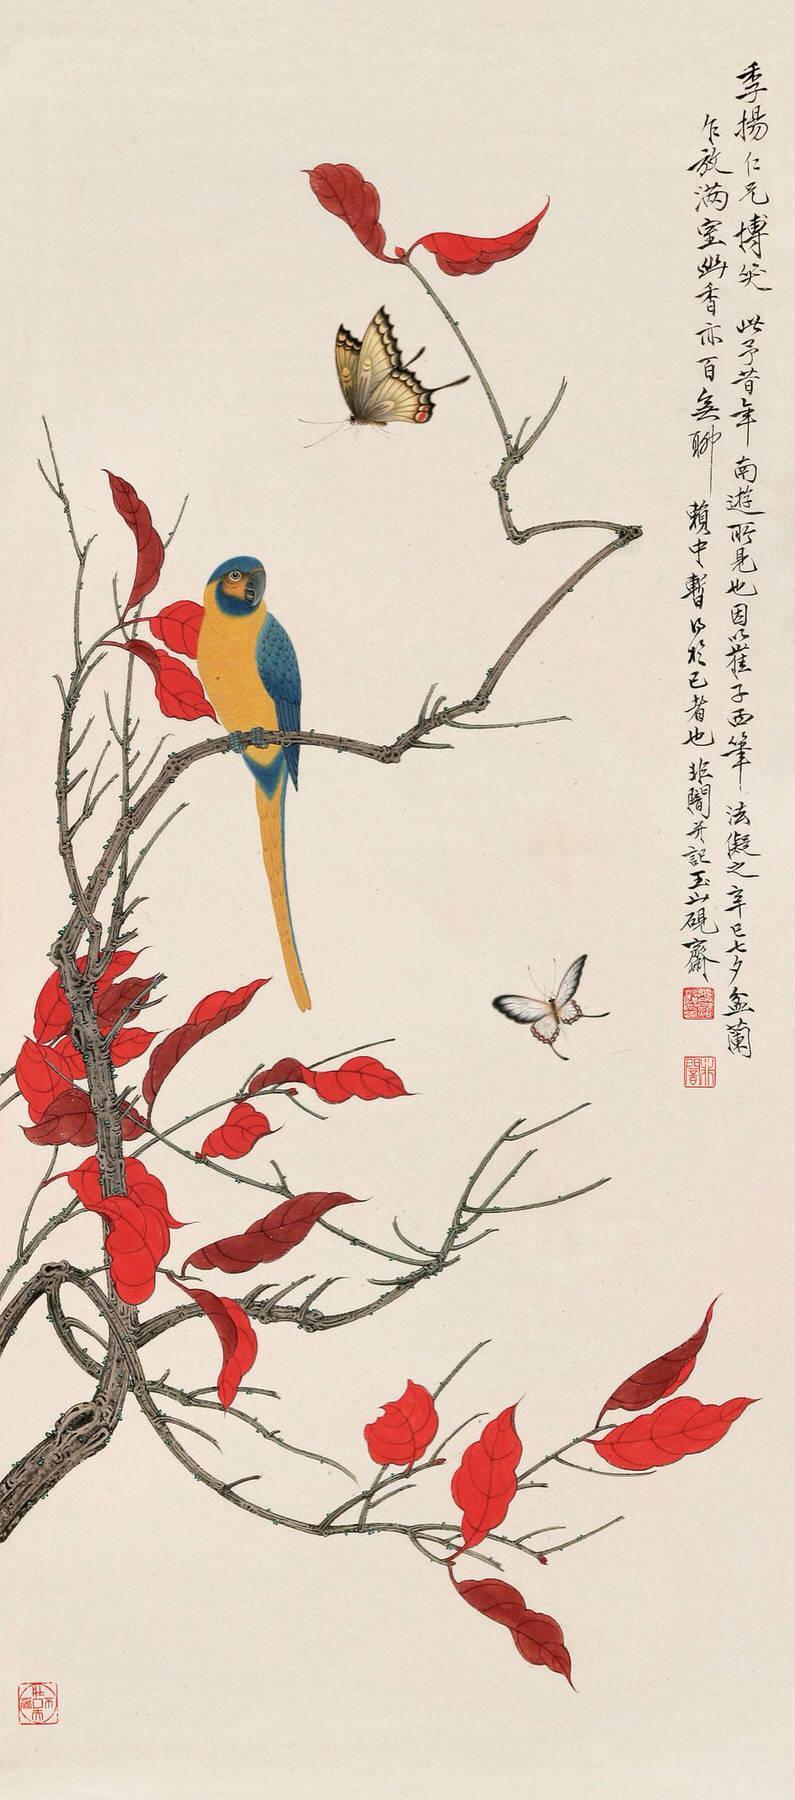 季揚仁兄博笑 此予昔年南遊所見也因以崔子西筆法擬之辛巳七夕盆蘭
乍放滿室幽香亦百無聊賴中暫得於己者也非闇并記玉山硯齋
非闇